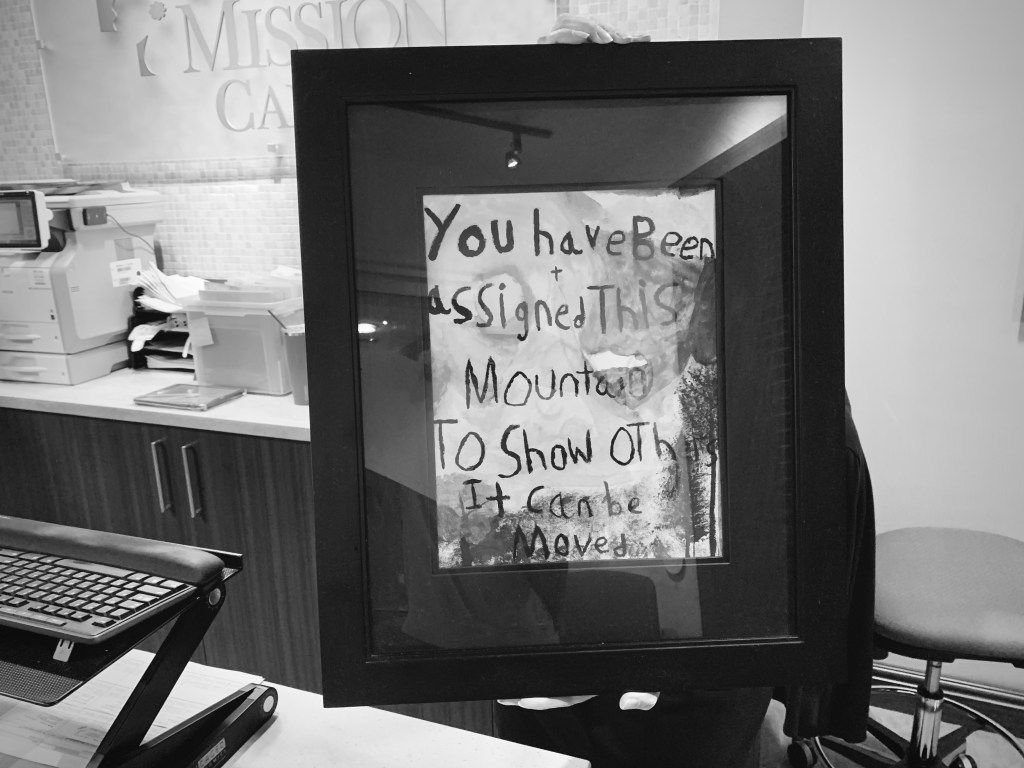 MISSION
CA
You have Been
assigned THiS
Mountain
To Show OTh
It can be
Moved